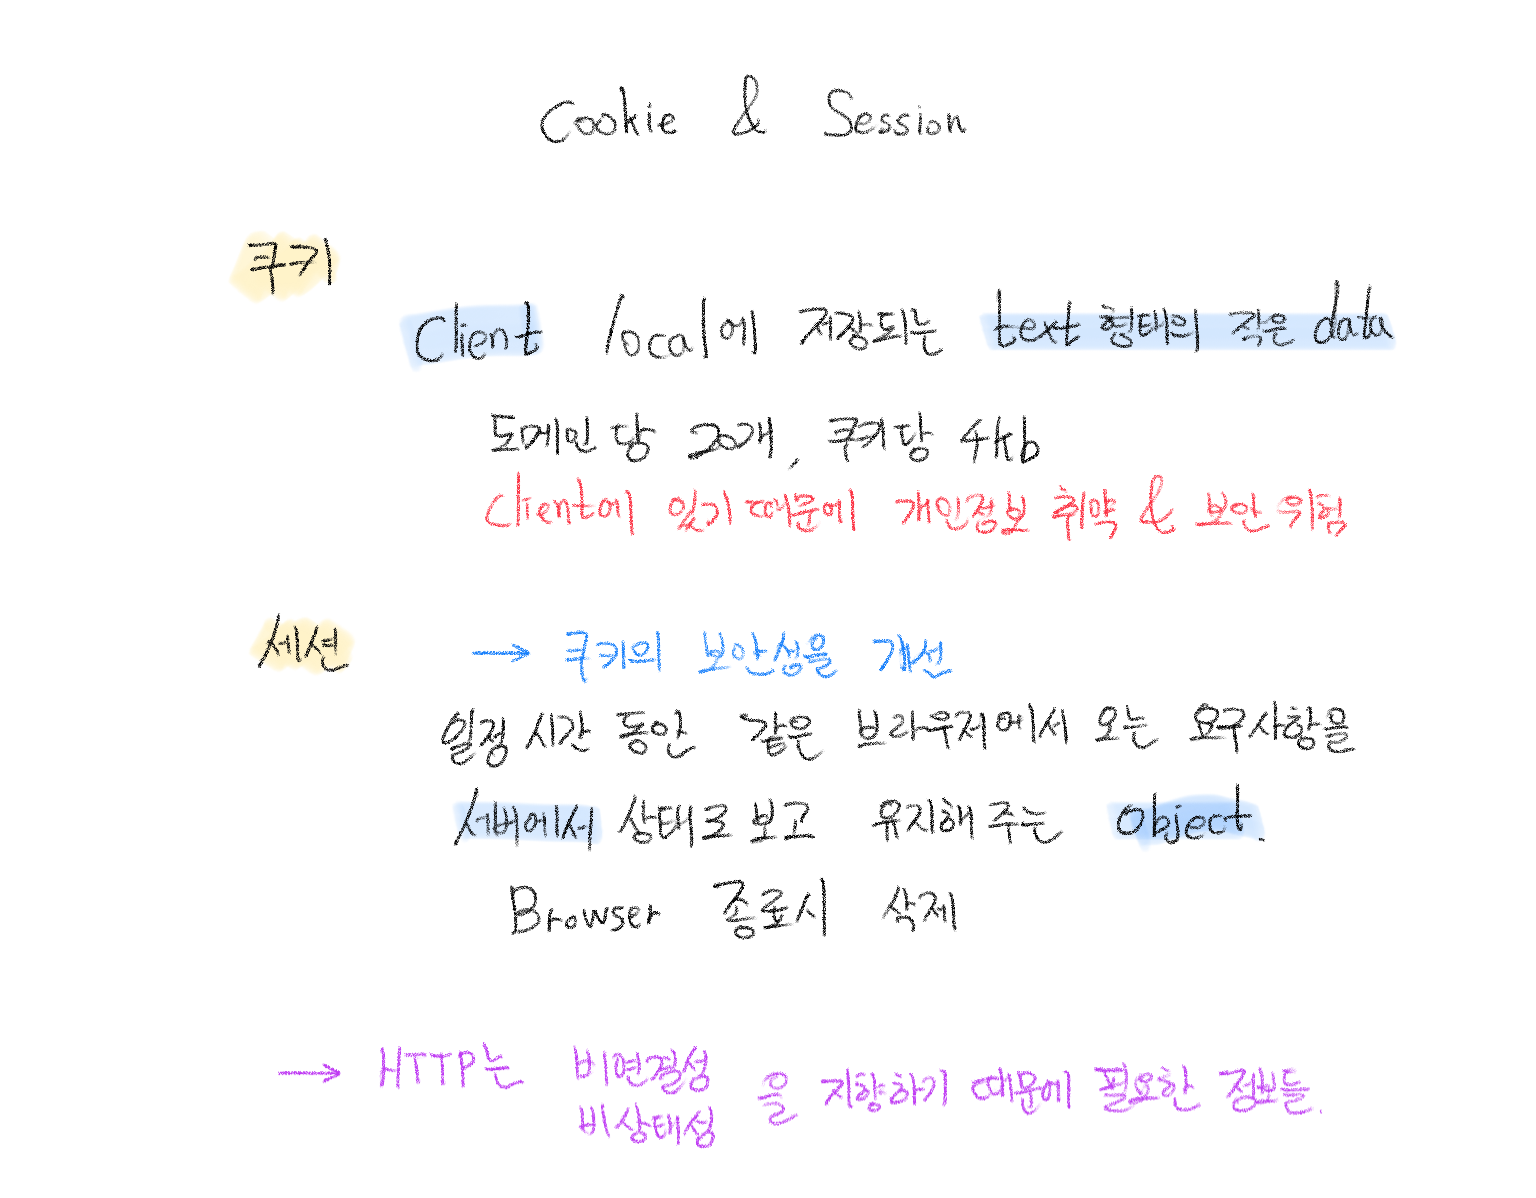 Cookie & Session
쿠키
Client local에 저장되는 text 형태의 작은 data
도메인 당 20개, 쿠키당 4kb
Client에 있기 때문에 개인정보 취약 & 보안 위험
세션 → 쿠키의 보안성을 개선
일정 시간 동안 같은 브라우저에서 오는 요구사항을
서버에서 상태로 보고 유지해 주는 Object.
Browser 종료시 삭제
→ HTTP는 비연결성
비상태성 을 지향하기 때문에 필요한 정보들.